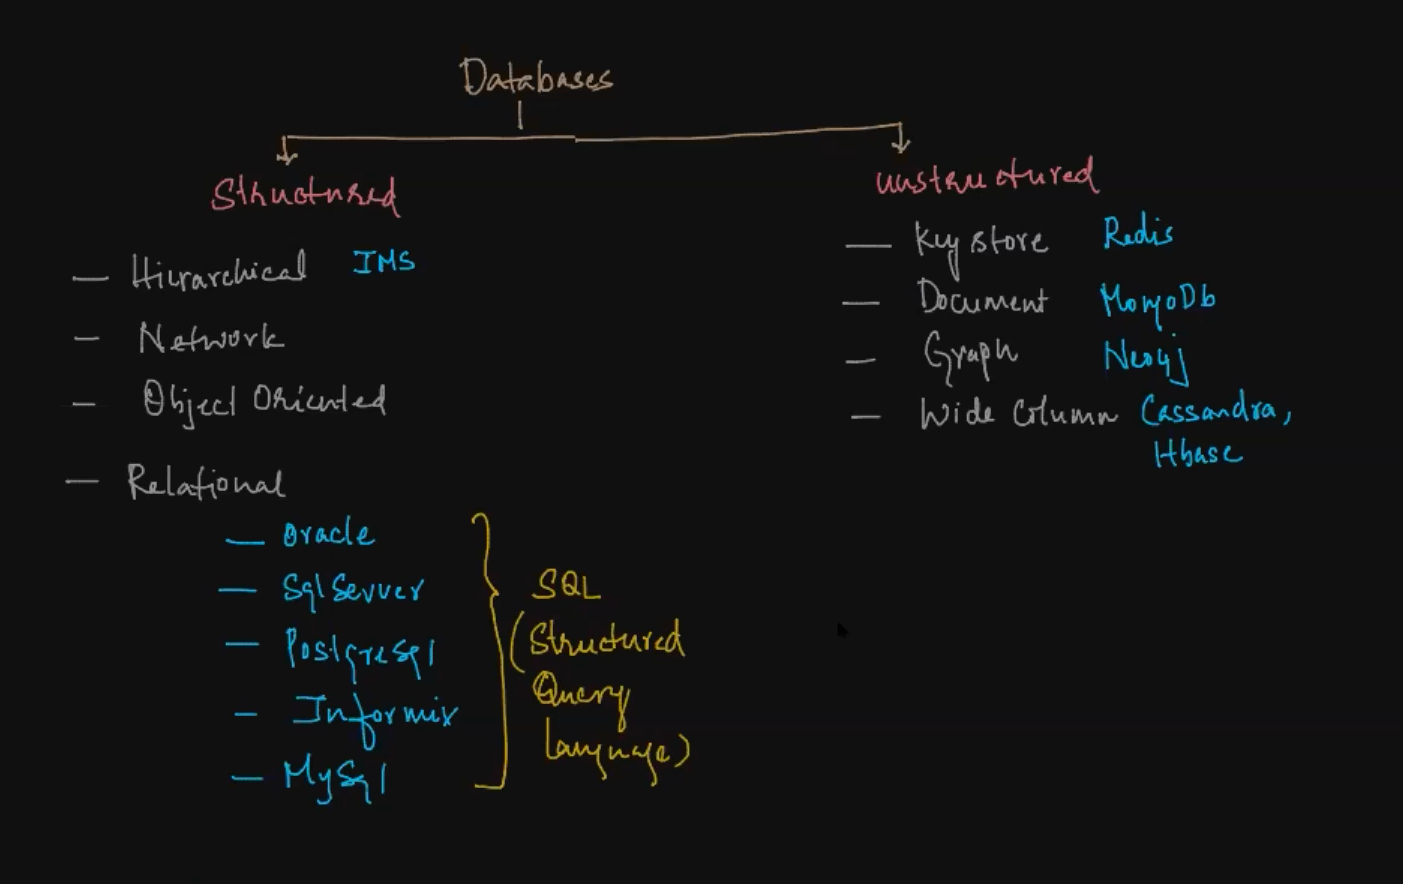 Databases
Structured
— Hierarchical IMS
— Network
— Object Oriented
— Relational
— Oracle
— SqlServer
— PostgreSql
— Informix
— MySql
SQL
(Structured
Query
Language)
unstructured
— Key store Redis
— Document MongoDb
— Graph Neo4j
— Wide Column Cassandra,
Hbase